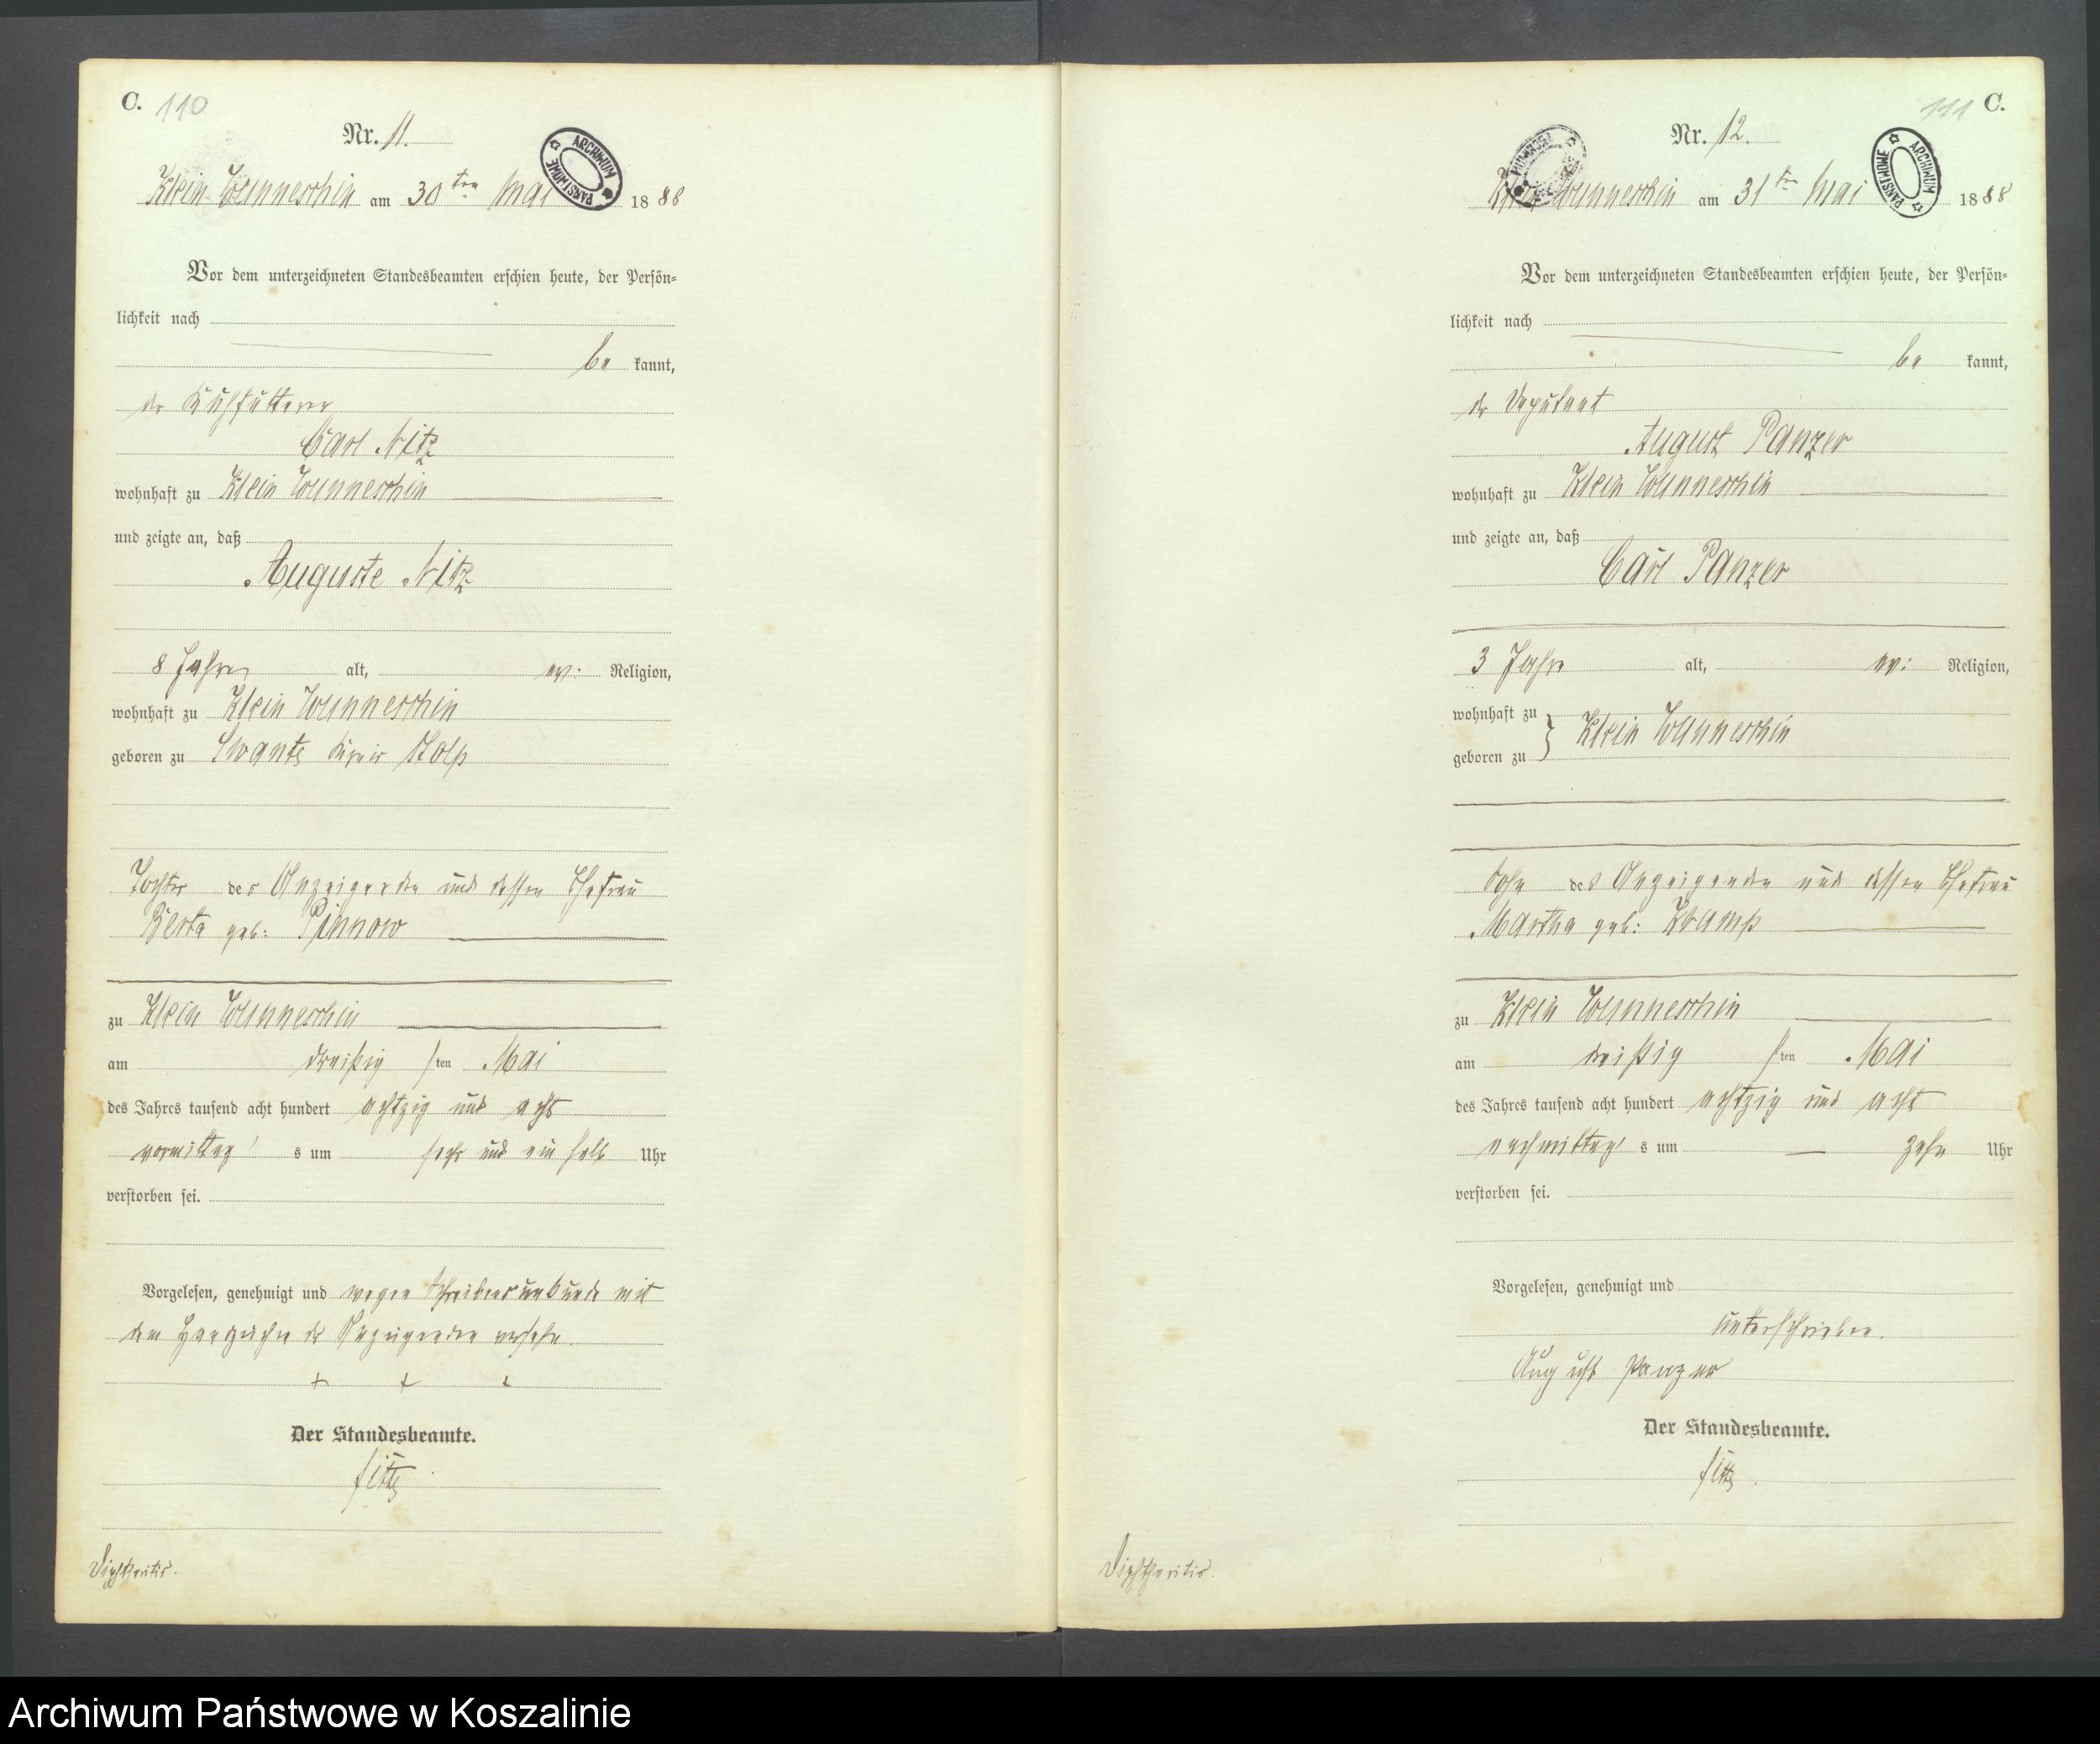 C. 110
Nr. 11.
ARCHIWUM PAŃSTWOWE
Klein Wunneschin am 30ten Mai 1888
Vor dem unterzeichneten Standesbeamten erschien heute, der Persön=
lichkeit nach
be kannt,
der Kuhfütterer
Carl Nitz
wohnhaft zu Klein Wunneschin
und zeigte an, daß
Auguste Nitz
8 Jahre alt, ev: Religion,
wohnhaft zu Klein Wunneschin
geboren zu Kreis Stolp
Tochter des Anzeigenden und dessen Ehefrau
Berta geb: Pinnow
zu Klein Wunneschin
am dreißig sten Mai
des Jahres tausend acht hundert achtzig und acht
vormittag s um sechs und ein halb Uhr
verstorben sei.
Vorgelesen, genehmigt und wegen Schreibensunkunde mit
den Handzeichen des Anzeigenden versehen.
+ + +
Der Standesbeamte.
Diphtheritis.
111 C.
Nr. 12.
ARCHIWUM PAŃSTWOWE
Klein Wunneschin am 31ten Mai 1888
Vor dem unterzeichneten Standesbeamten erschien heute, der Persön=
lichkeit nach
be kannt,
der Deputant
August Panzer
wohnhaft zu Klein Wunneschin
und zeigte an, daß
Carl Panzer
3 Jahre alt, ev: Religion,
wohnhaft zu
geboren zu } Klein Wunneschin
Sohn des Anzeigenden und dessen Ehefrau
Martha geb:
zu Klein Wunneschin
am dreißig sten Mai
des Jahres tausend acht hundert achtzig und acht
nachmittag s um zehn Uhr
verstorben sei.
Vorgelesen, genehmigt und
unterschrieben.
August Panzer
Der Standesbeamte.
Diphtheritis.
Archiwum Państwowe w Koszalinie